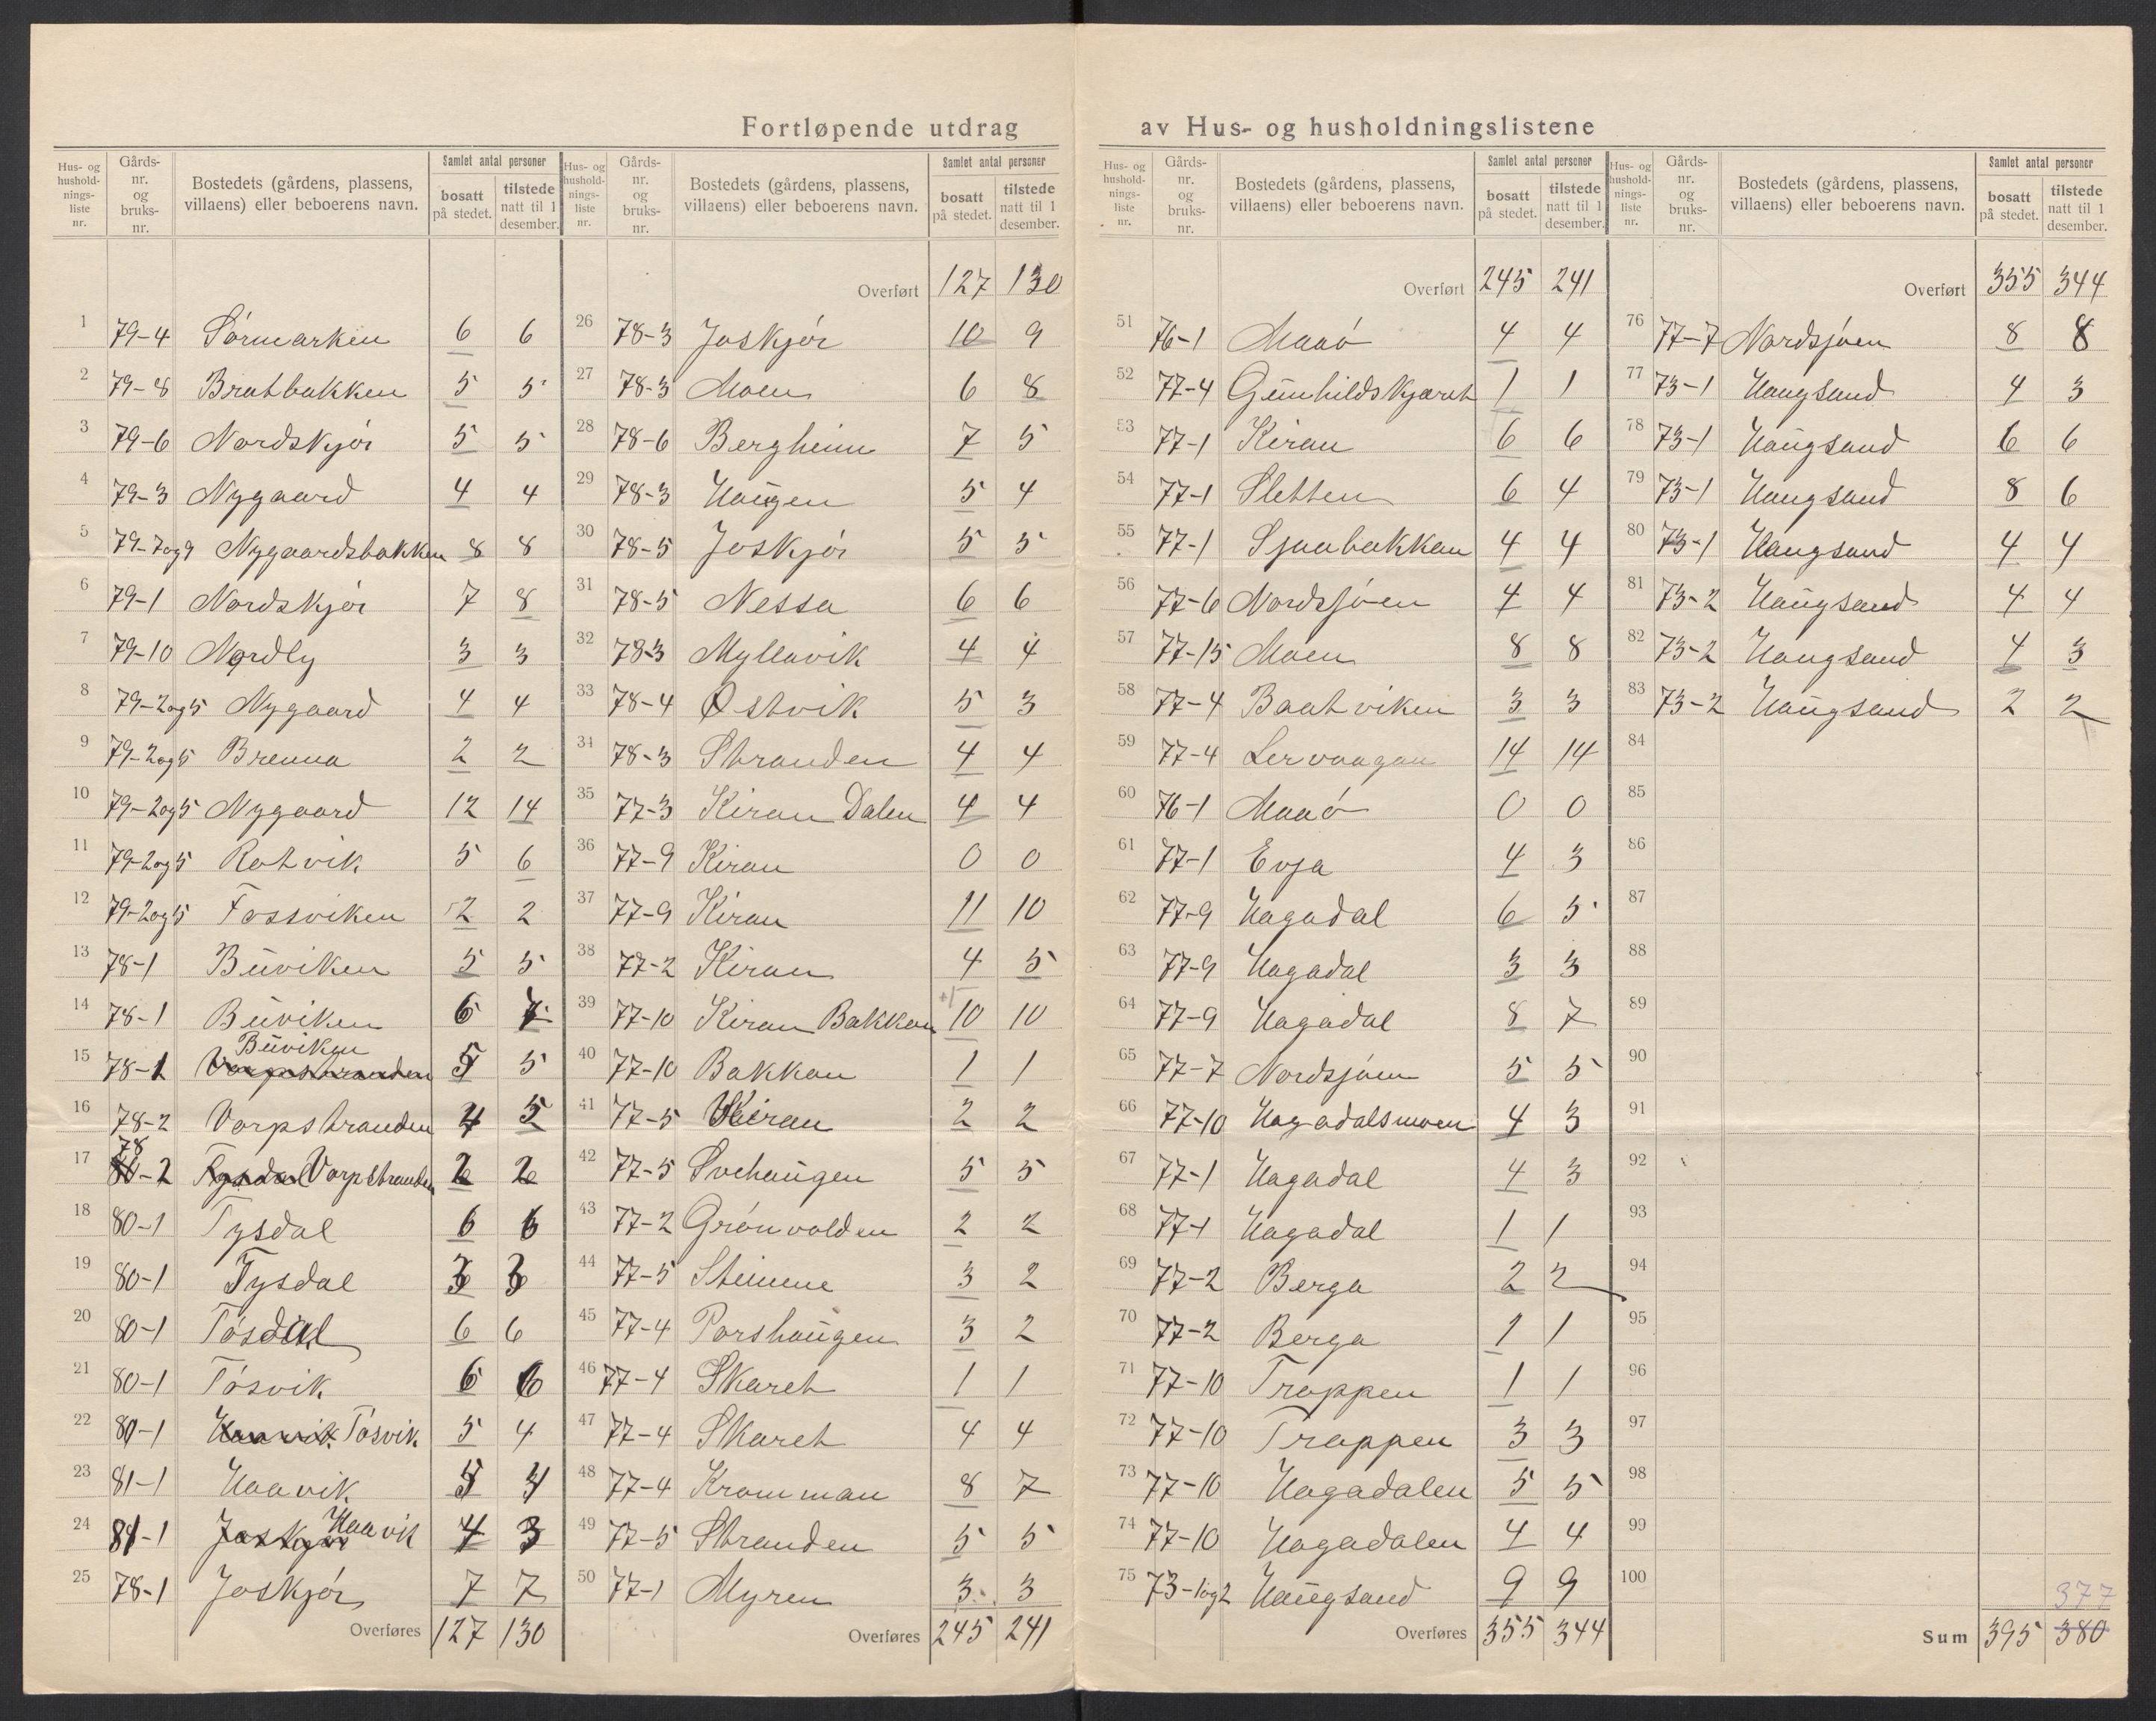 Fortløpende utdrag av Hus- og husholdningslistene
Hus- og husholdnings- liste nr. | Gårds- nr. og bruks- nr. | Bostedets (gårdens, plassens, villaens) eller beboerens navn. | Samlet antal personer | bosatt på stedet. | tilstede natt til 1 desember.
1 79-4 Sørmarken 6 6
2 79-8 Bratbakken 5 5
3 79-6 Nordskjør 5 5
4 79-3 Nygaard 4 4
5 79-7og9 Nygaardsbakken 8 8
6 79-1 Nordskjør 7 8
7 79-10 Nordly 3 3
8 79-2og5 Nygaard 4 4
9 79-2og5 Brenna 2 2
10 79-2og5 Nygaard 12 14
11 79-2og5 Rotvik 5 6
12 79-2og5 Fossviken 2 2
13 78-1 Buviken 5 5
14 78-1 Buviken 6 7
15 78-1 Buviken 5 5
16 78-2 Vorpstranden 4 5
17 78-2 Tysdal Vorpstranden 2 2
18 80-1 Tysdal 6 6
19 80-1 Tysdal 3 3
20 80-1 Tøsdal 6 6
21 80-1 Tøsvik 6 6
22 80-1 Haavik Tøsvik 5 4
23 81-1 Haavik
24 81-1 Joskjør Haavik 4 3
25 78-1 Joskjør 7 7
Overføres 127 130
Hus- og husholdnings- liste nr. | Gårds- nr. og bruks- nr. | Bostedets (gårdens, plassens, villaens) eller beboerens navn. | Samlet antal personer | bosatt på stedet. | tilstede natt til 1 desember.
Overført 127 130
26 78-3 Joskjør 10 9
27 78-3 Moen 6 8
28 78-6 Bergheim 7 5
29 78-3 Haugen 5 4
30 78-5 Joskjør 5 5
31 78-5 Nessa 6 6
32 78-3 Myllavik 4 4
33 78-4 Østvik 5 3
34 78-3 Stranden 4 4
35 77-3 Kiran Dalen 4 4
36 77-9 Kiran 0 0
37 77-9 Kiran 11 10
38 77-2 Kiran 4 5
39 77-10 Kiran Bakkan 10 10
40 77-10 Bakkan 1 1
41 77-5 Kiran 2 2
42 77-5 Svehaugen 5 5
43 77-2 Grønvolden 2 2
44 77-5 Steinene 3 2
45 77-4 Porshaugen 3 2
46 77-4 Skaret 1 1
47 77-4 Skaret 4 4
48 77-4 Kromman 8 7
49 77-5 Stranden 5 5
50 77-1 Myren 3 3
Overføres 245 241
Hus- og husholdnings- liste nr. | Gårds- nr. og bruks- nr. | Bostedets (gårdens, plassens, villaens) eller beboerens navn. | Samlet antal personer | bosatt på stedet. | tilstede natt til 1 desember.
Overført 245 241
51 76-1 Maaø 4 4
52 77-4 Gunhildskjæret 1 1
53 77-1 Kiran 6 6
54 77-1 Sletten 6 4
55 77-1 Sjaabakkan 4 4
56 77-6 Nordsjøen 4 4
57 77-15 Moen 8 8
58 77-4 Baatviken 3 3
59 77-4 Lervaagan 14 14
60 76-1 Maaø 0 0
61 77-1 Evja 4 3
62 77-9 Hagadal 6 5
63 77-9 Hagadal 3 3
64 77-9 Hagadal 8 7
65 77-7 Nordsjøen 5 5
66 77-10 Hagadalsmoen 4 3
67 77-1 Hagadal 4 3
68 77-1 Hagadal 1 1
69 77-2 Berga 2 2
70 77-2 Berga 1 1
71 77-10 Trappen 1 1
72 77-10 Trappen 3 3
73 77-10 Hagadalen 5 5
74 77-10 Hagadalen 4 4
75 73-1og2 Haugsand 9 9
Overføres 355 344
Hus- og husholdnings- liste nr. | Gårds- nr. og bruks- nr. | Bostedets (gårdens, plassens, villaens) eller beboerens navn. | Samlet antal personer | bosatt på stedet. | tilstede natt til 1 desember.
Overført 355 344
76 77-7 Nordsjøen 8 8
77 73-1 Haugsand 4 3
78 73-1 Haugsand 6 6
79 73-1 Haugsand 8 6
80 73-1 Haugsand 4 4
81 73-2 Haugsand 4 4
82 73-2 Haugsand 4 3
83 73-2 Haugsand 2 2
84
85
86
87
88
89
90
91
92
93
94
95
96
97
98
99
100
377
Sum 395 380